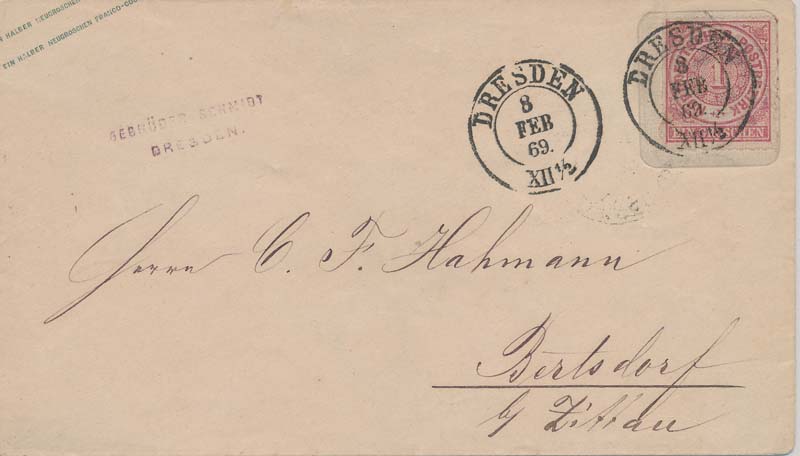 HALBER NEUGROSCHEN
EIN HALBER NEUGROSCHEN FRANCO-COU
GEBRÜDER SCHMIDT
DRESDEN.
DRESDEN
8
FEB
69.
XII ½
DRESDEN
8
FEB
69.
XII ½
1
Herrn C. F. Hahmann
Bertsdorf
b/ Zittau